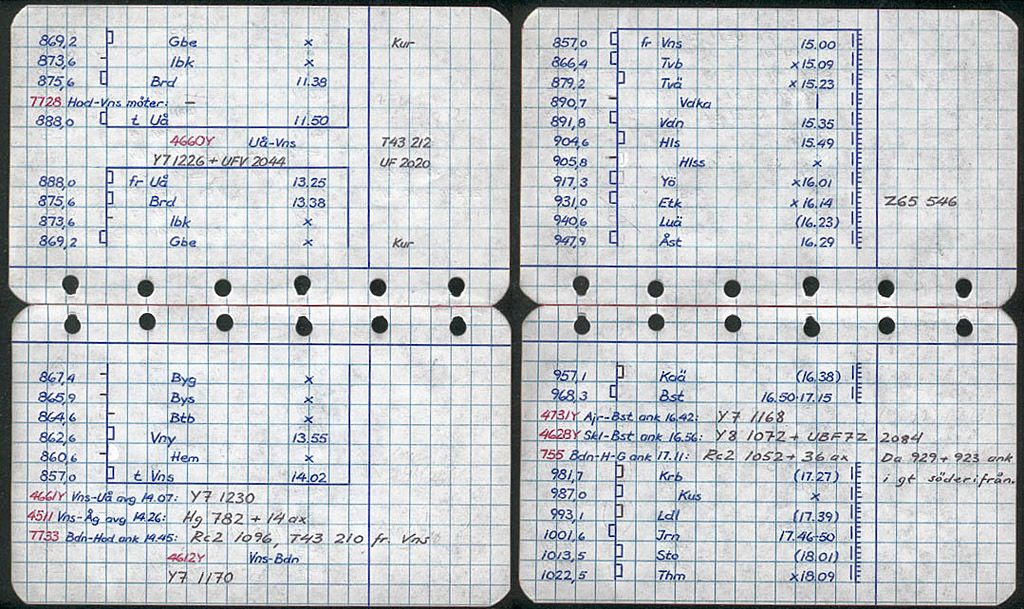 869,2 Gbe x Kur
873,6 Ibk x
875,6 Brd 11.38
7728 Hod-Vns möter: —
888,0 t Uå 11.50
4660Y Uå-Vns T43 212
Y7 1226 + UFV 2044 UF 2020
888,0 fr Uå 13.25
875,6 Brd 13.38
873,6 Ibk x
869,2 Gbe x Kur
867,4 Byg x
865,9 Bys x
864,6 Btb x
862,6 Vny 13.55
860,6 Hem x
857,0 t Vns 14.02
4661Y Vns-Uå avg 14.07: Y7 1230
4511 Vns-Åg avg 14.26: Hg 782 + 14 ax
7733 Bdn-Hod ank 14.45: Rc2 1096, T43 210 fr. Vns
4612Y Vns-Bdn
Y7 1170
857,0 fr Vns 15.00
866,4 Tvb x 15.09
879,2 Tvä x 15.23
890,7 Vdka |
891,8 Vdn 15.35
904,6 Hls 15.49
905,8 Hlss x
917,3 Yö x 16.01
931,0 Etk x 16.14 Z65 546
940,6 Luä (16.23)
947,9 Åst 16.29
957,1 Kaä (16.38)
968,3 Bst 16.50-17.15
4731Y Ajr-Bst ank 16.42: Y7 1168
4628Y Skl-Bst ank 16.56: Y8 1072 + UBF7Z 2084
755 Bdn-H-G ank 17.11: Rc2 1052 + 36 ax Da 929 + 923 ank
981,7 Krb (17.27) i gt söderifrån.
987,0 Kus x
993,1 Ldl (17.39)
1001,6 Jrn 17.46-50
1013,5 Sto (18.01)
1022,5 Thm x 18.09